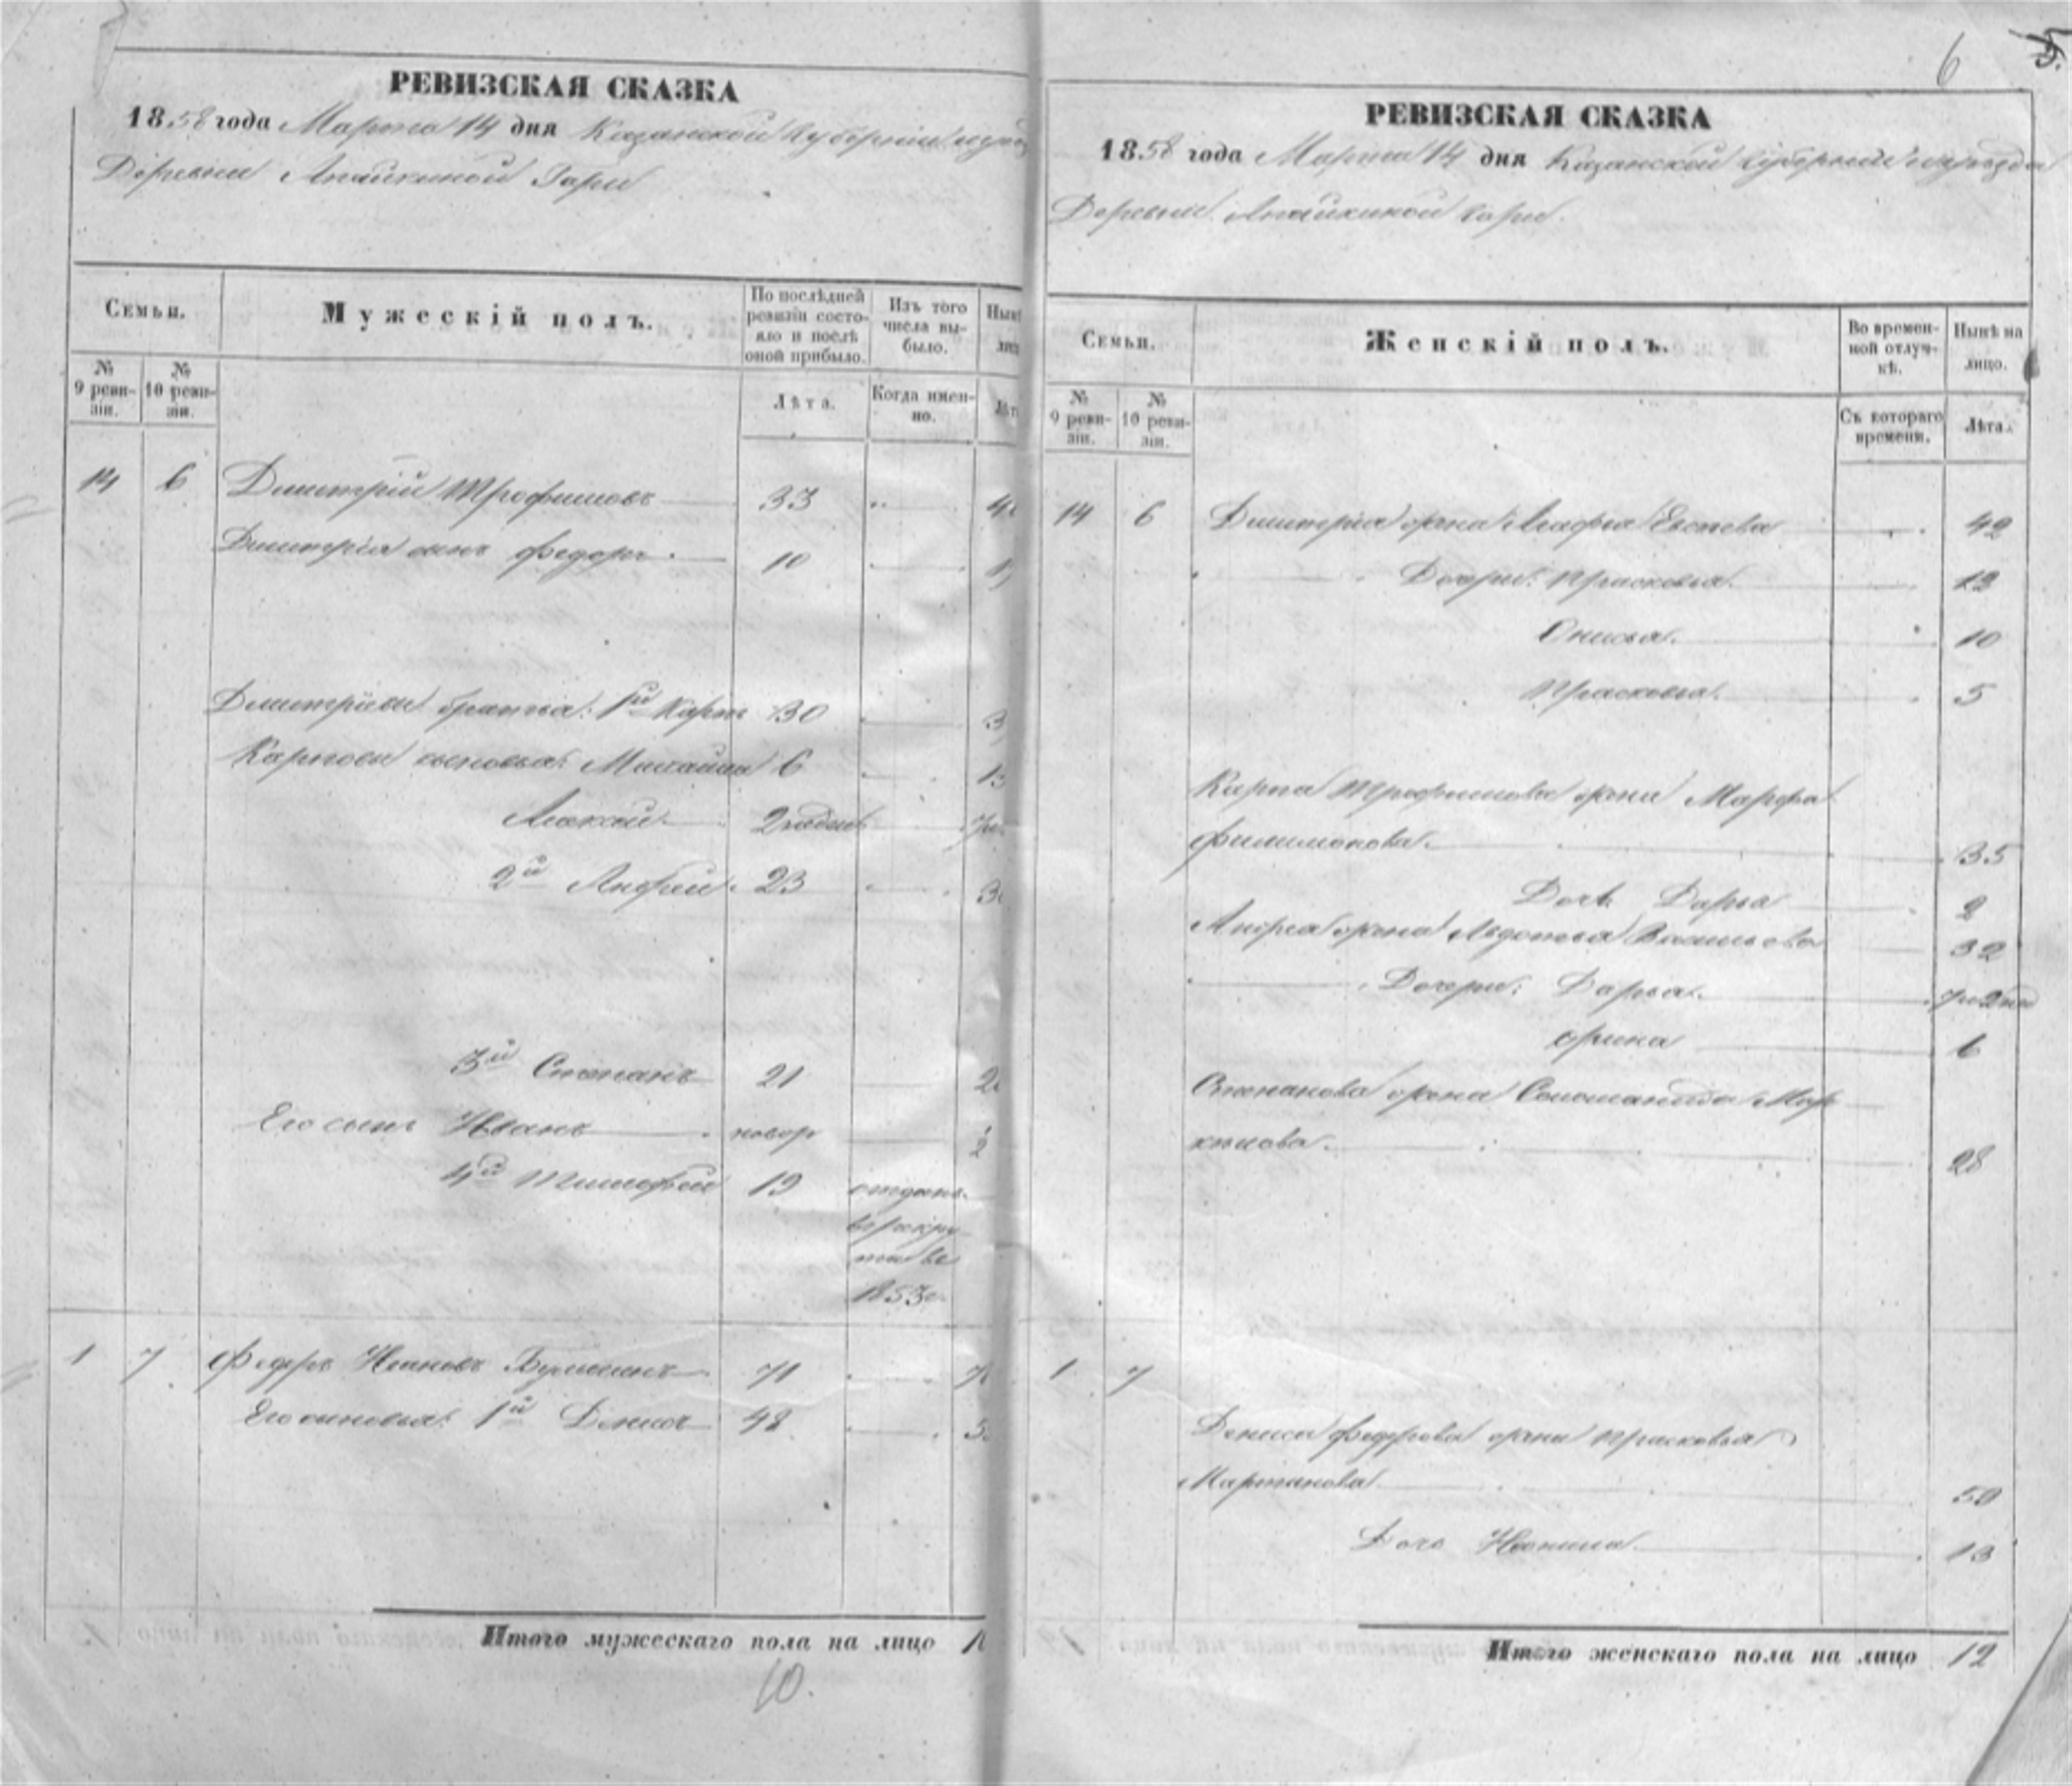 РЕВИЗСКАЯ СКАЗКА
1858 года Марта 14 дня Казанской Губернии и уезд
Деревни Апайкиной Гари
Семьи.
Мужескій полъ.
По послѣдней ревизіи состояло и послѣ оной прибыло.
Изъ того числа выбыло.
Нынѣ
лиц
№ 9 ревизіи.
№ 10 ревизіи.
Лѣта.
Когда именно.
Лѣт
14 6 Димитрій Трофимовъ 33 4
Димитрія сынъ Федоръ 10 1
Димитріевы братья: 1й Карпъ 30 3
Карповы сыновья: Михайла 6 13
23 3
3й Степанъ 21 2
Его сынъ Иванъ новор 2
4й Тимофей 19 отданъ
в рекру
ты в
1853г.
1 7 Федоръ Ивановъ 71 7
Его сыновья: 1й Денисъ 48 5
Итого мужескаго пола на лицо 1
10.
6 5.
РЕВИЗСКАЯ СКАЗКА
1858 года Марта 14 дня Казанской Губернии и уезда
Деревни Апайкиной Гари.
Семьи.
Женскій полъ.
Во временной отлучкѣ.
Нынѣ на лицо.
№ 9 ревизіи.
№ 10 ревизіи.
Съ котораго времени.
Лѣта.
14 6 Димитрія жена Агафья 42
Дочери: Прасковья. 12
Онисья. 10
Прасковья. 5
Карпа Трофимова жена Марфа
Филимонова. 35
Дочь Дарья 2
жена Авдотья Васильева 32
Дочери: Дарья.
Орина
Степанова жена Соломанида
28
1 7
Дениса Федорова жена Прасковья
Мартынова 50
Дочь 13
Итого женскаго пола на лицо 12